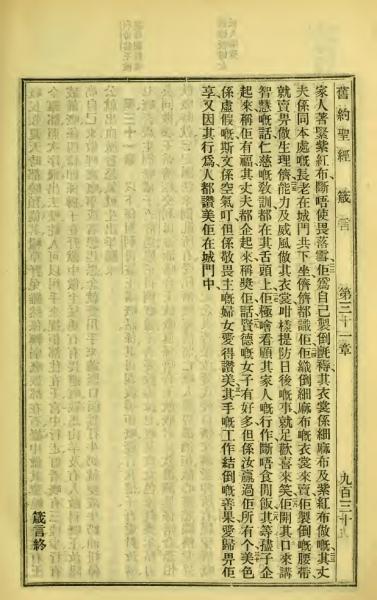 舊約聖經 箴言 第三十一章 九百三十
家人著緊紫紅布斷唔使畏落雪佢爲自己製倒氈褥其衣裳係細麻布及紫紅布做嘅其丈
夫係同本處嘅長老在城門共下坐儕儕都識佢佢織倒細麻布嘅衣裳來賣佢製倒嘅腰帶
就賣畀做生理儕能力及威風做其衣裳咁樣提防日後嘅事就足歡喜來笑佢開其口來講
智慧嘅話仁慈嘅教訓都在其舌頭上佢極會看顧其家人嘅行作斷唔食閒飯其等孻子企
起來稱佢有福其丈夫都企起來稱獎佢話賢德嘅女子有好多但係汝贏過佢所有个美色
係虛假嘅斯文係空氣叮但係敬畏主嘅婦女愛得讚美其手嘅工作結倒嘅善果愛歸畀佢
享又因其行爲人都讚美佢在城門中
箴言終